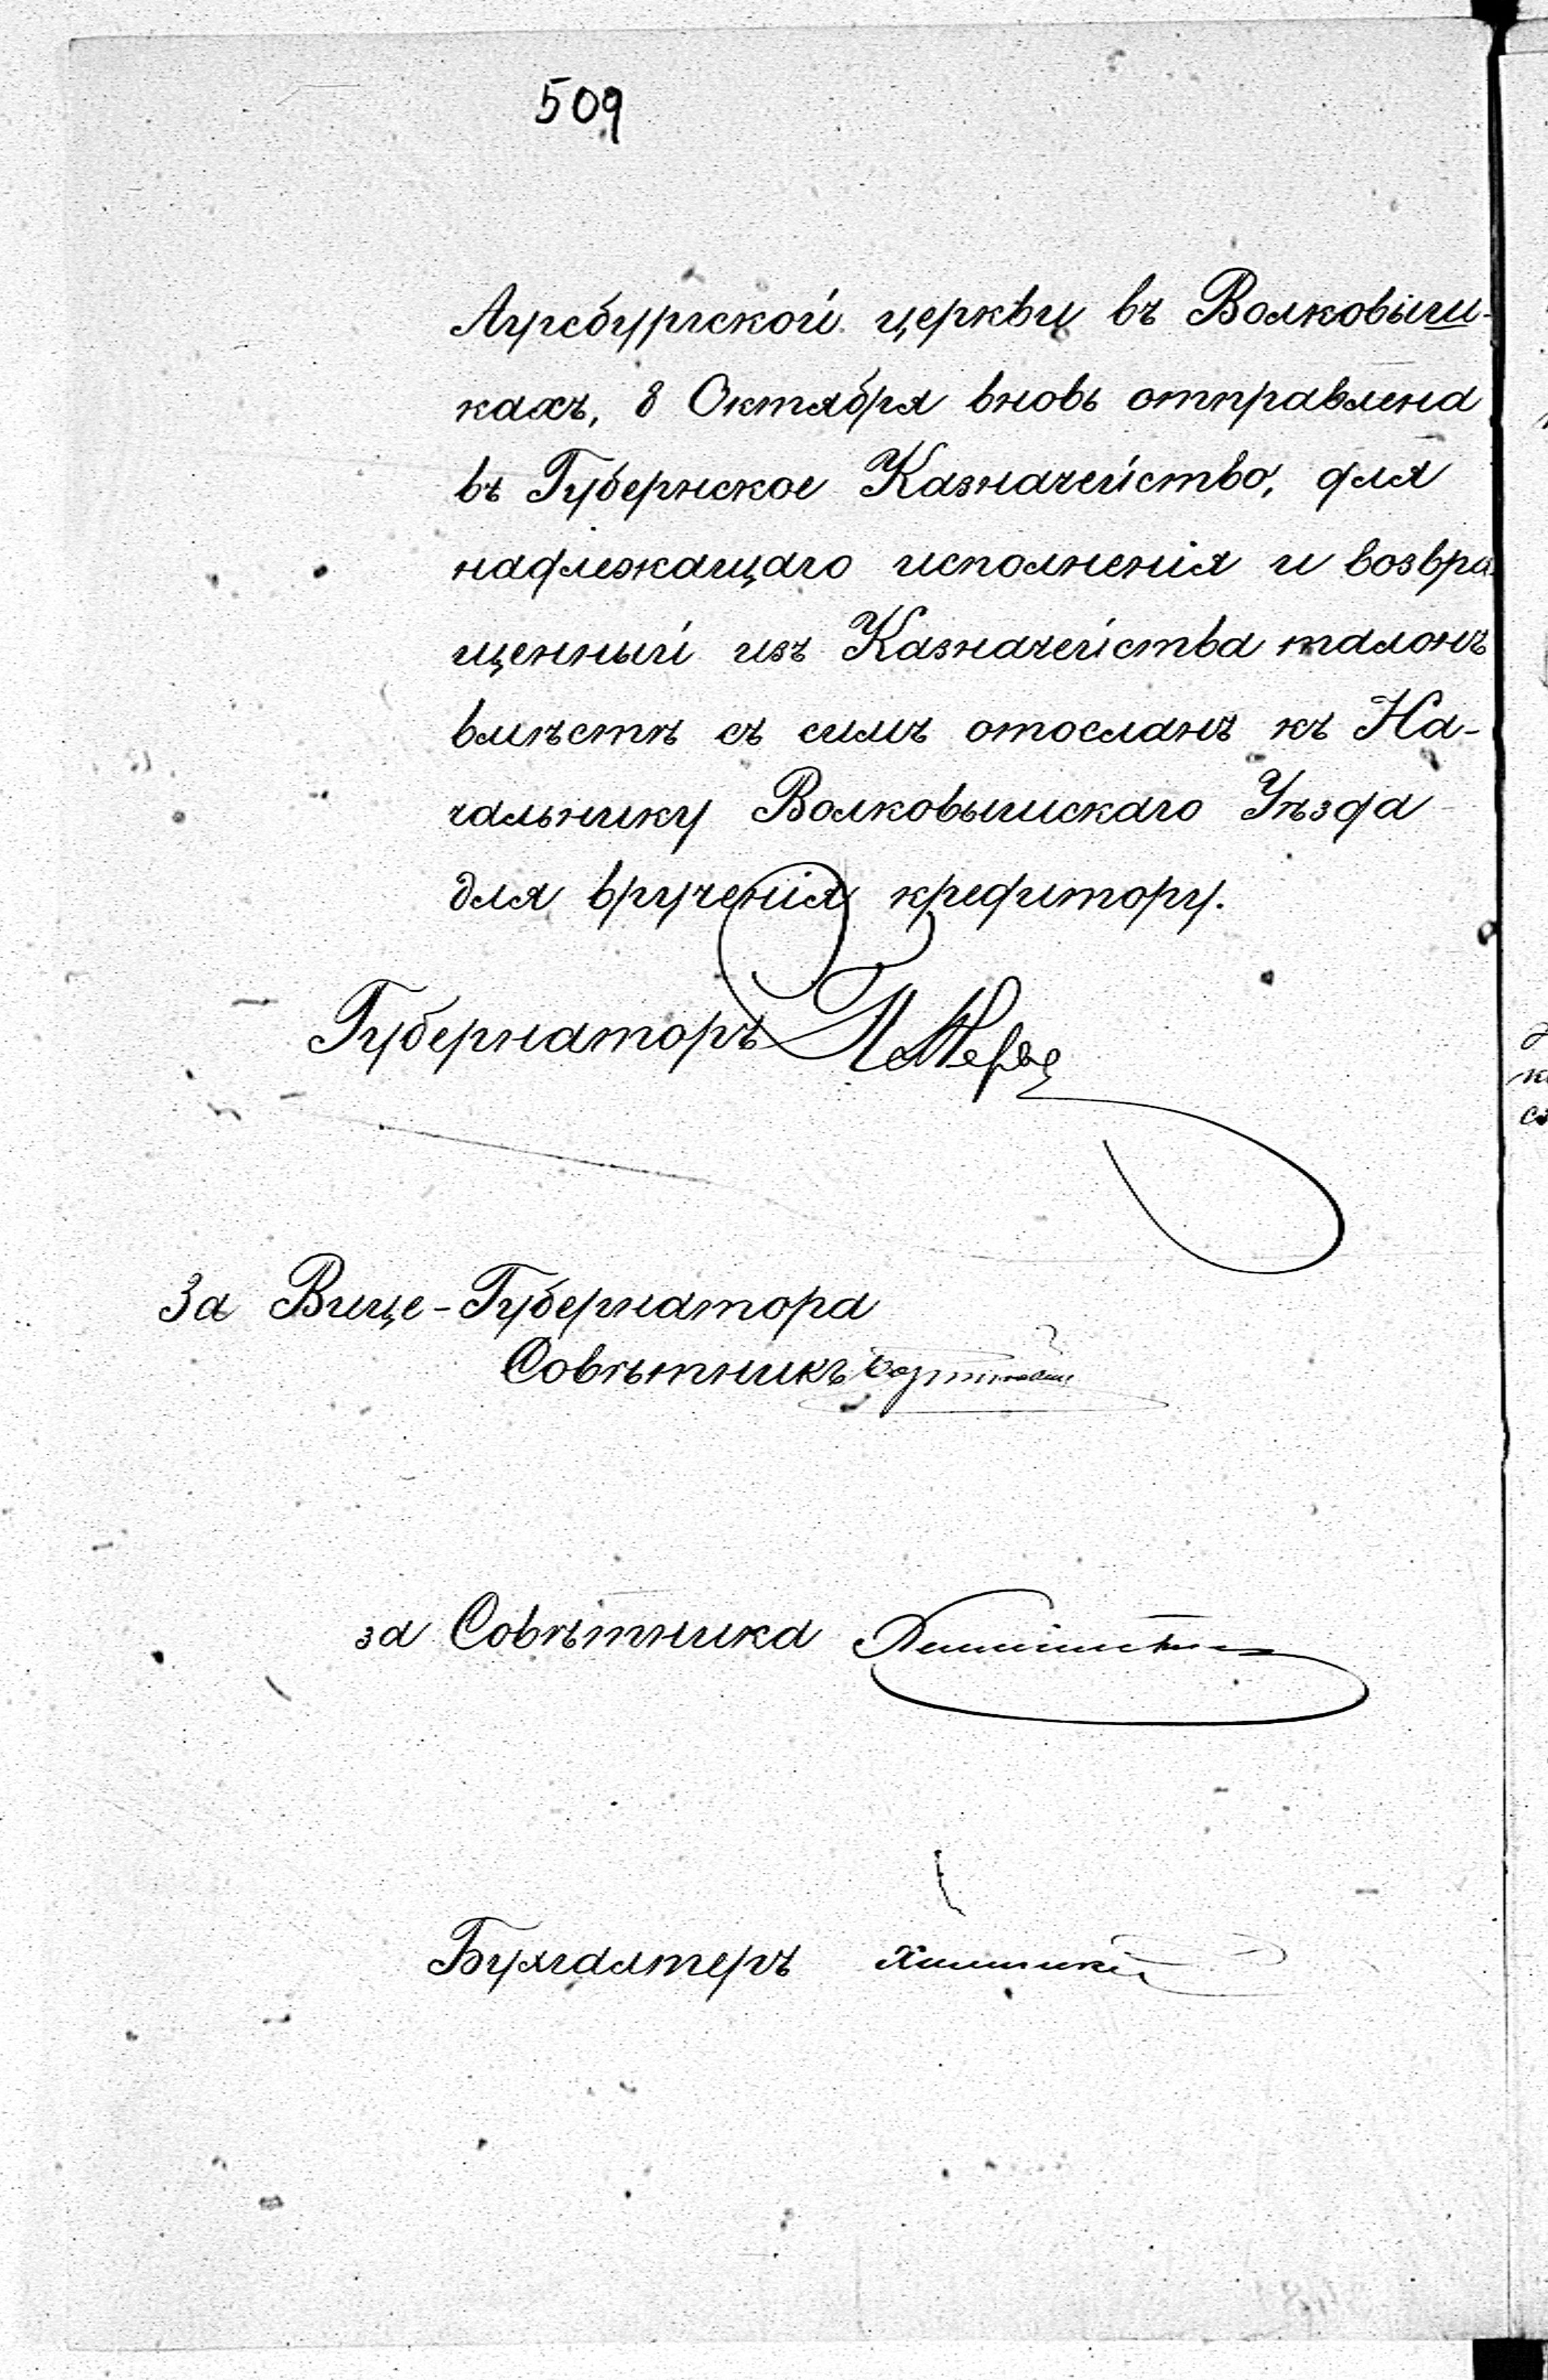 509
Аугсбургской церкви въ Волковыш-
кахъ, 8 Октября вновь отправлена
въ Губернское Казначейство, для
надлежащаго исполненія и возвра
щенный изъ Казначейства талонъ
вмѣстѣ съ симъ отосланъ къ На-
чальнику Волковышскаго Уѣзда
для врученія кредитору.
Губернаторъ
За Вице-Губернатора
Совѣтникъ
за Совѣтника
Бухгалтеръ